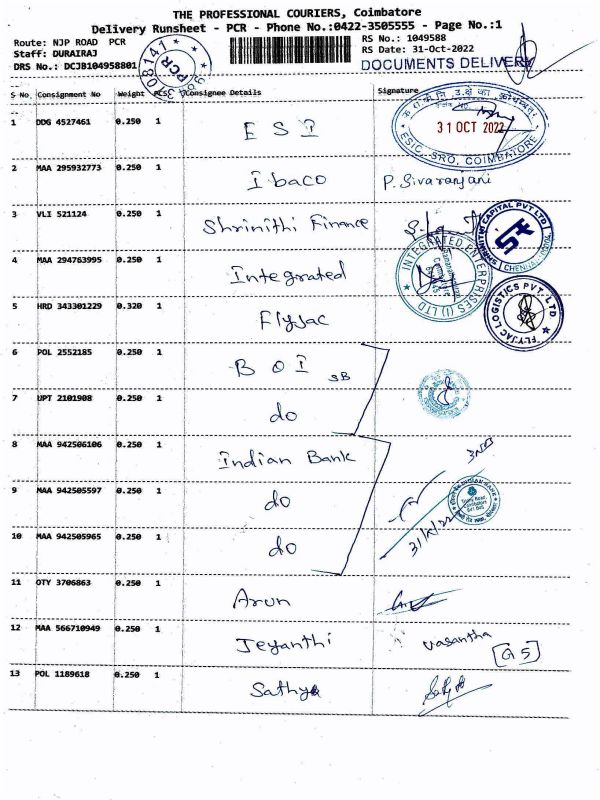 THE PROFESSIONAL COURIERS, Coimbatore
Delivery Runsheet - PCR - Phone No.:0422-3505555 - Page No.:1
Route: NJP ROAD PCR
RS No.: 1049588
Staff: DURAIRAJ
RS Date: 31-Oct-2022
DRS No.: DCJB104958801
DOCUMENTS DELIVERY
308141
PCR
S No. Consignment No Weight PCS Consignee Details Signature
1 DDG 4527461 0.250 1 E S I
31 OCT 2022
ESIC, SRO, COIMBATORE
2 MAA 295932773 0.250 1 Ibaco P. Sivaranjani
3 VLI 521124 0.250 1 Shrinithi Finance
SHRINITHI CAPITAL PVT LTD
CHENNAI
4 MAA 294763995 0.250 1 Integrated
INTEGRATED ENTERPRISES (I) LTD
5 HRD 343301229 0.320 1 Flyjac
FLYJAC LOGISTICS PVT. LTD
6 POL 2552185 0.250 1 B O I SB
7 UPT 2101908 0.250 1 do
8 MAA 942506106 0.250 1 Indian Bank
9 MAA 942505597 0.250 1 do
INDIAN BANK
10 MAA 942505965 0.250 1 do
11 OTY 3706863 0.250 1 Arun
12 MAA 566710949 0.250 1 Jeyanthi vasantha
[G5]
13 POL 1189618 0.250 1 Sathya